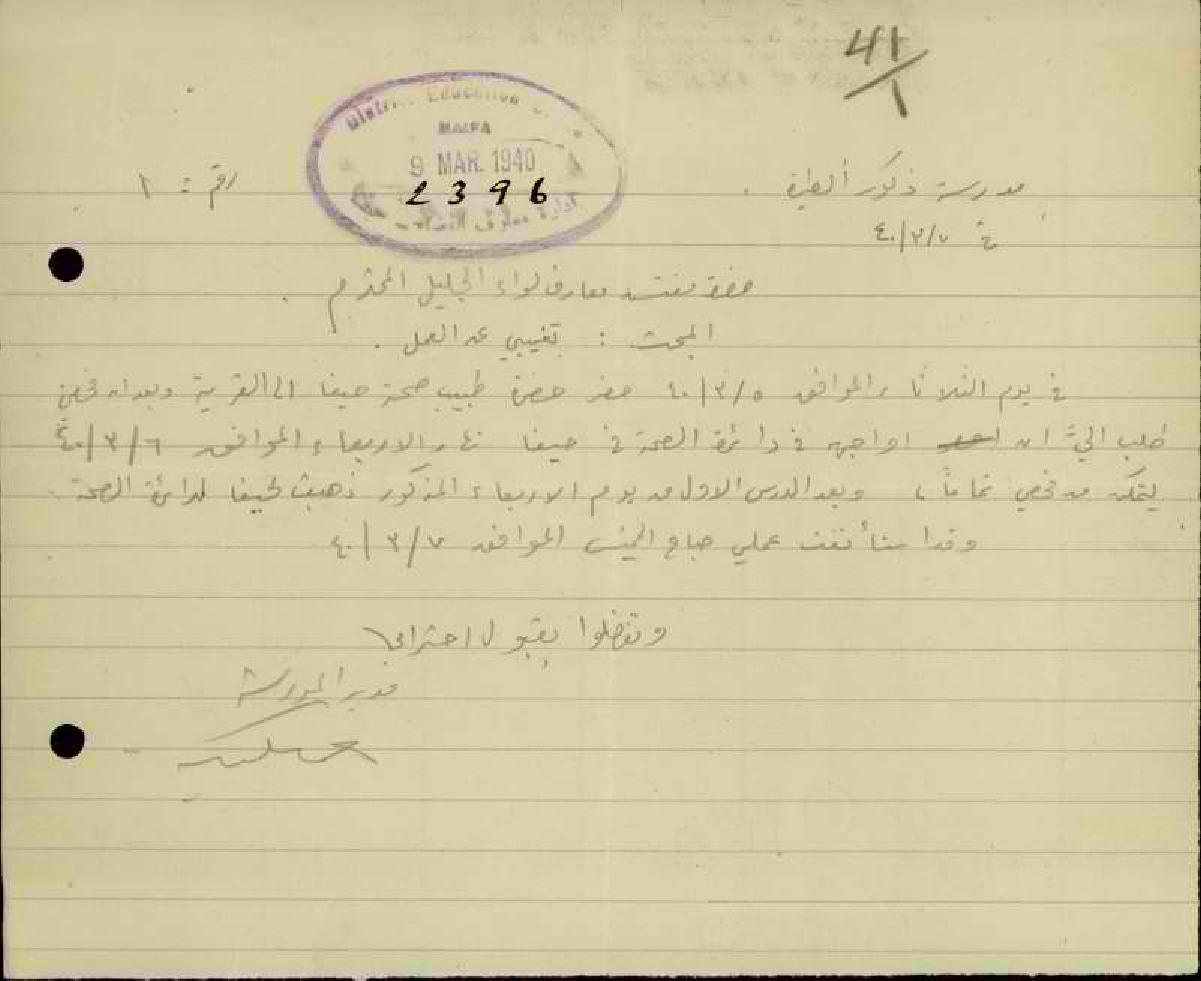 41/1
District Education
HAIFA
9 MAR. 1940
2396
ادارة معارف
مدرسة ذكور الطيرة . رقم : ١
في ٧/٣/٤٠
حضرة مفتش معارف لواء الجليل المحترم .
المبحث : تغيبي عن العمل .
في يوم الثلاثاء الموافق ٥/٣/٤٠ حضر حضرة طبيب صحة حيفا الى القرية وبعد ان فحصني
طلب اليّ ان اواجهه في دائرة الصحة في حيفا نهار الاربعاء الموافق ٦/٣/٤٠
ليتمكن من فحصي تماماً ، وبعد الدرس الاول من يوم الاربعاء المذكور ذهبت لحيفا لدائرة الصحة .
وقد استأنفت عملي صباح الخميس الموافق ٧/٣/٤٠
وتفضلوا بقبول احترامي
مدير المدرسة